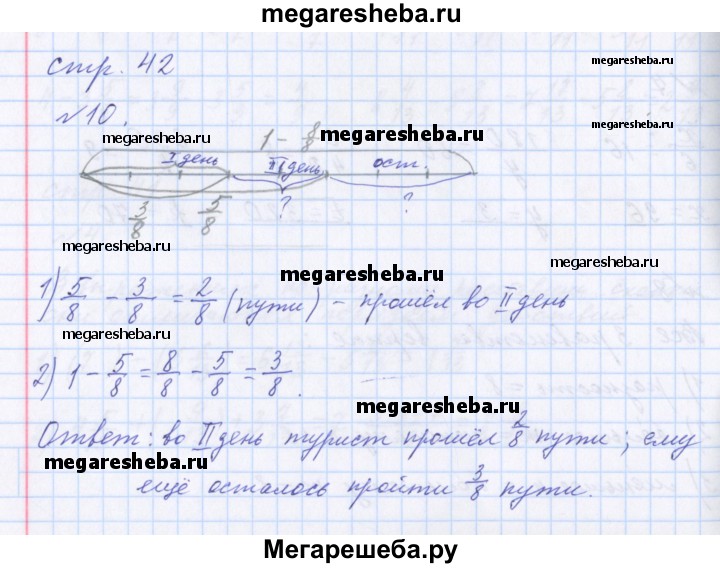 megaresheba.ru
стр. 42
megaresheba.ru
№10.
megaresheba.ru
1 - 8/8
megaresheba.ru
I день II день ост.
3/8 5/8 ? ?
megaresheba.ru
megaresheba.ru
1) 5/8 - 3/8 = 2/8 (пути) - прошёл во II день
megaresheba.ru
2) 1 - 5/8 = 8/8 - 5/8 = 3/8.
megaresheba.ru
Ответ: во II день турист прошёл 2/8 пути; ему
megaresheba.ru
ещё осталось пройти 3/8 пути.
megaresheba.ru
Мегарешеба.ру